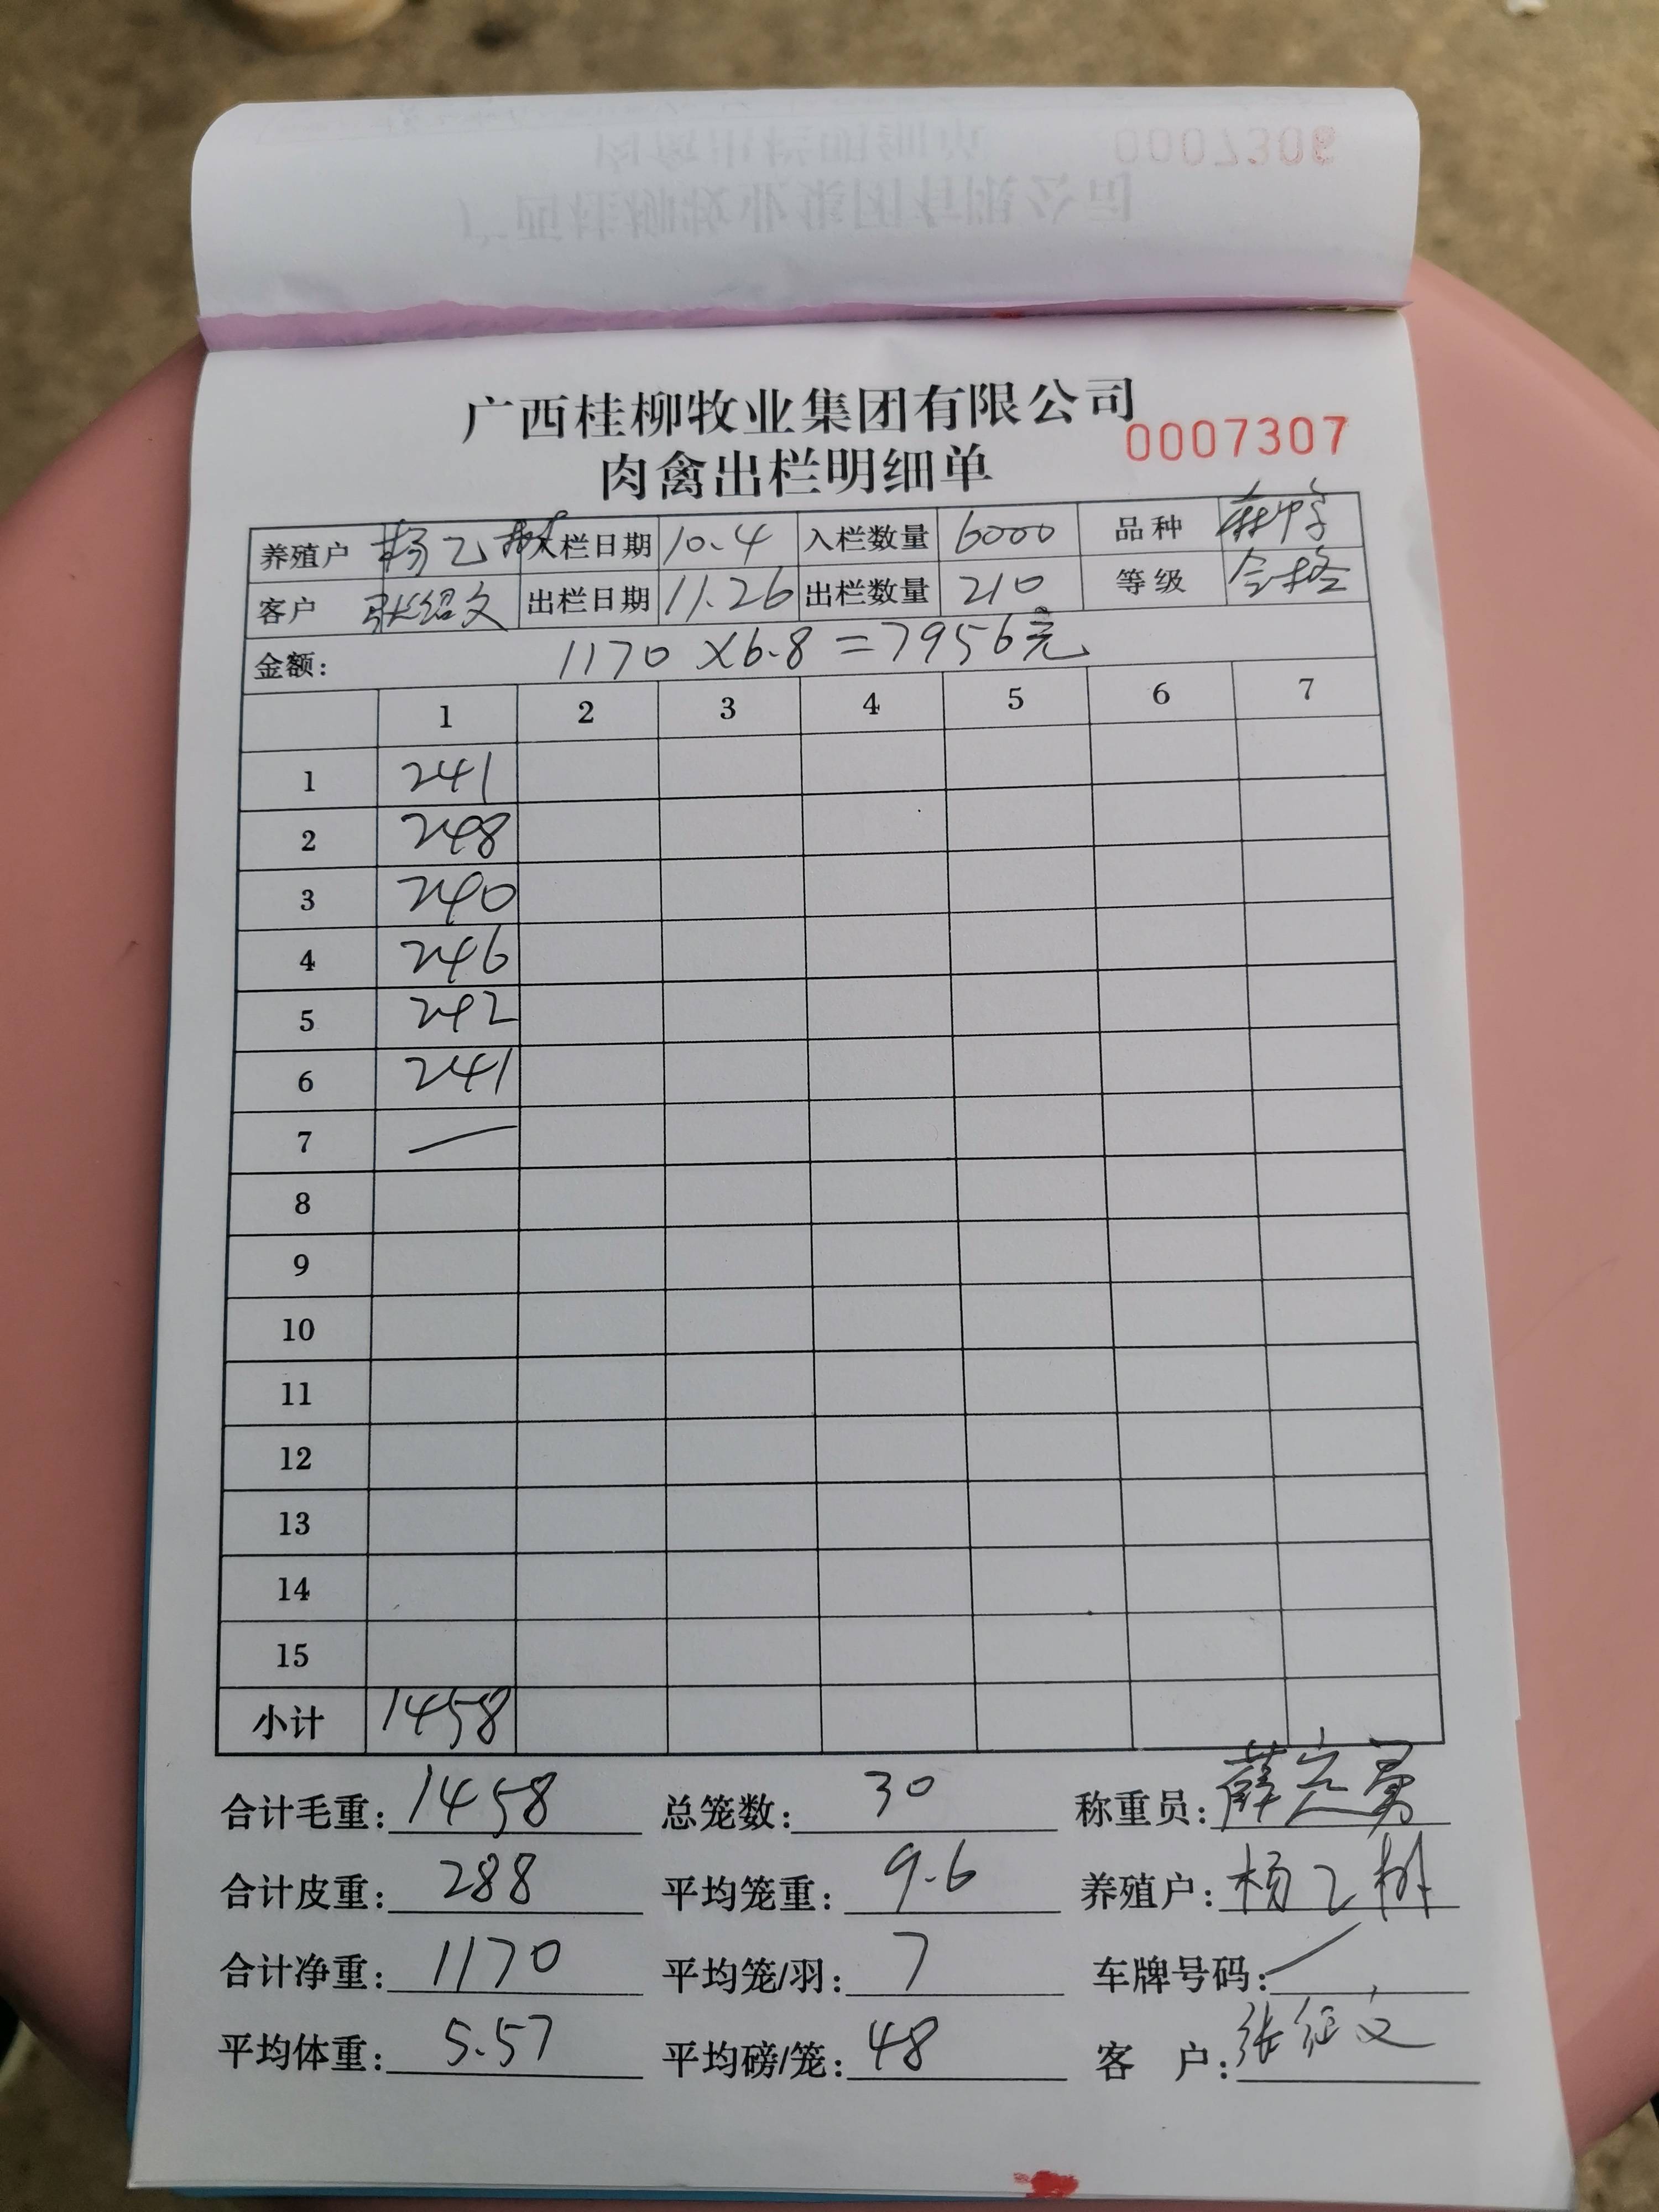 广西桂柳牧业集团有限公司
0007307
肉禽出栏明细单
养殖户 杨乙树 入栏日期 10.4 入栏数量 6000 品种
客户 张绍文 出栏日期 11.26 出栏数量 210 等级 合格
金额: 1170 ×6.8 =7956元
1 2 3 4 5 6 7
1 241
2 248
3 240
4 246
5 242
6 241
7 —
8
9
10
11
12
13
14
15
小计 1458
合计毛重: 1458 总笼数: 30 称重员: 薛定勇
合计皮重: 288 平均笼重: 9.6 养殖户: 杨乙树
合计净重: 1170 平均笼/羽: 7 车牌号码: /
平均体重: 5.57 平均磅/笼: 48 客 户: 张绍文